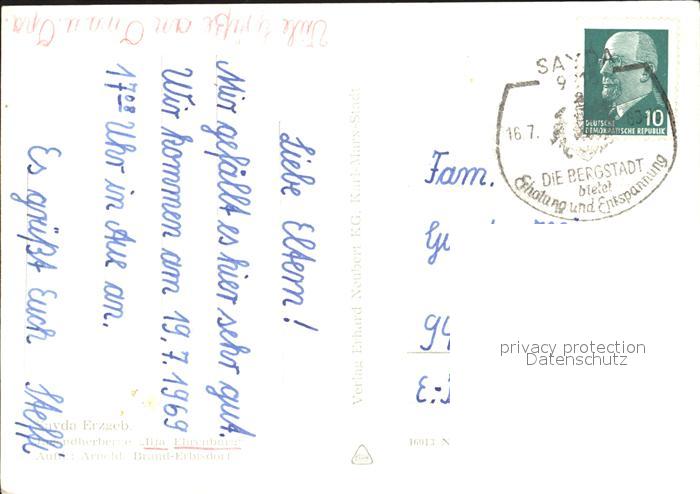 Viele Grüße an Oma u. Opa.
Liebe Eltern!
Mir gefällt es hier sehr gut.
Wir kommen am 19.7.1969
17⁰⁸ Uhr in Aue an.
Es grüßt Euch Steffi
Sayda Erzgeb.
Jugendherberge „Ilja Ehrenburg"
Aufn.: Arnold, Brand-Erbisdorf
Verlag Erhard Neubert KG, Karl-Marx-Stadt
SAYDA
9
16.7.
DIE BERGSTADT
bietet
Erholung und Entspannung
DEUTSCHE
DEMOKRATISCHE REPUBLIK
10
Fam.
94
privacy protection
Datenschutz
16013 N